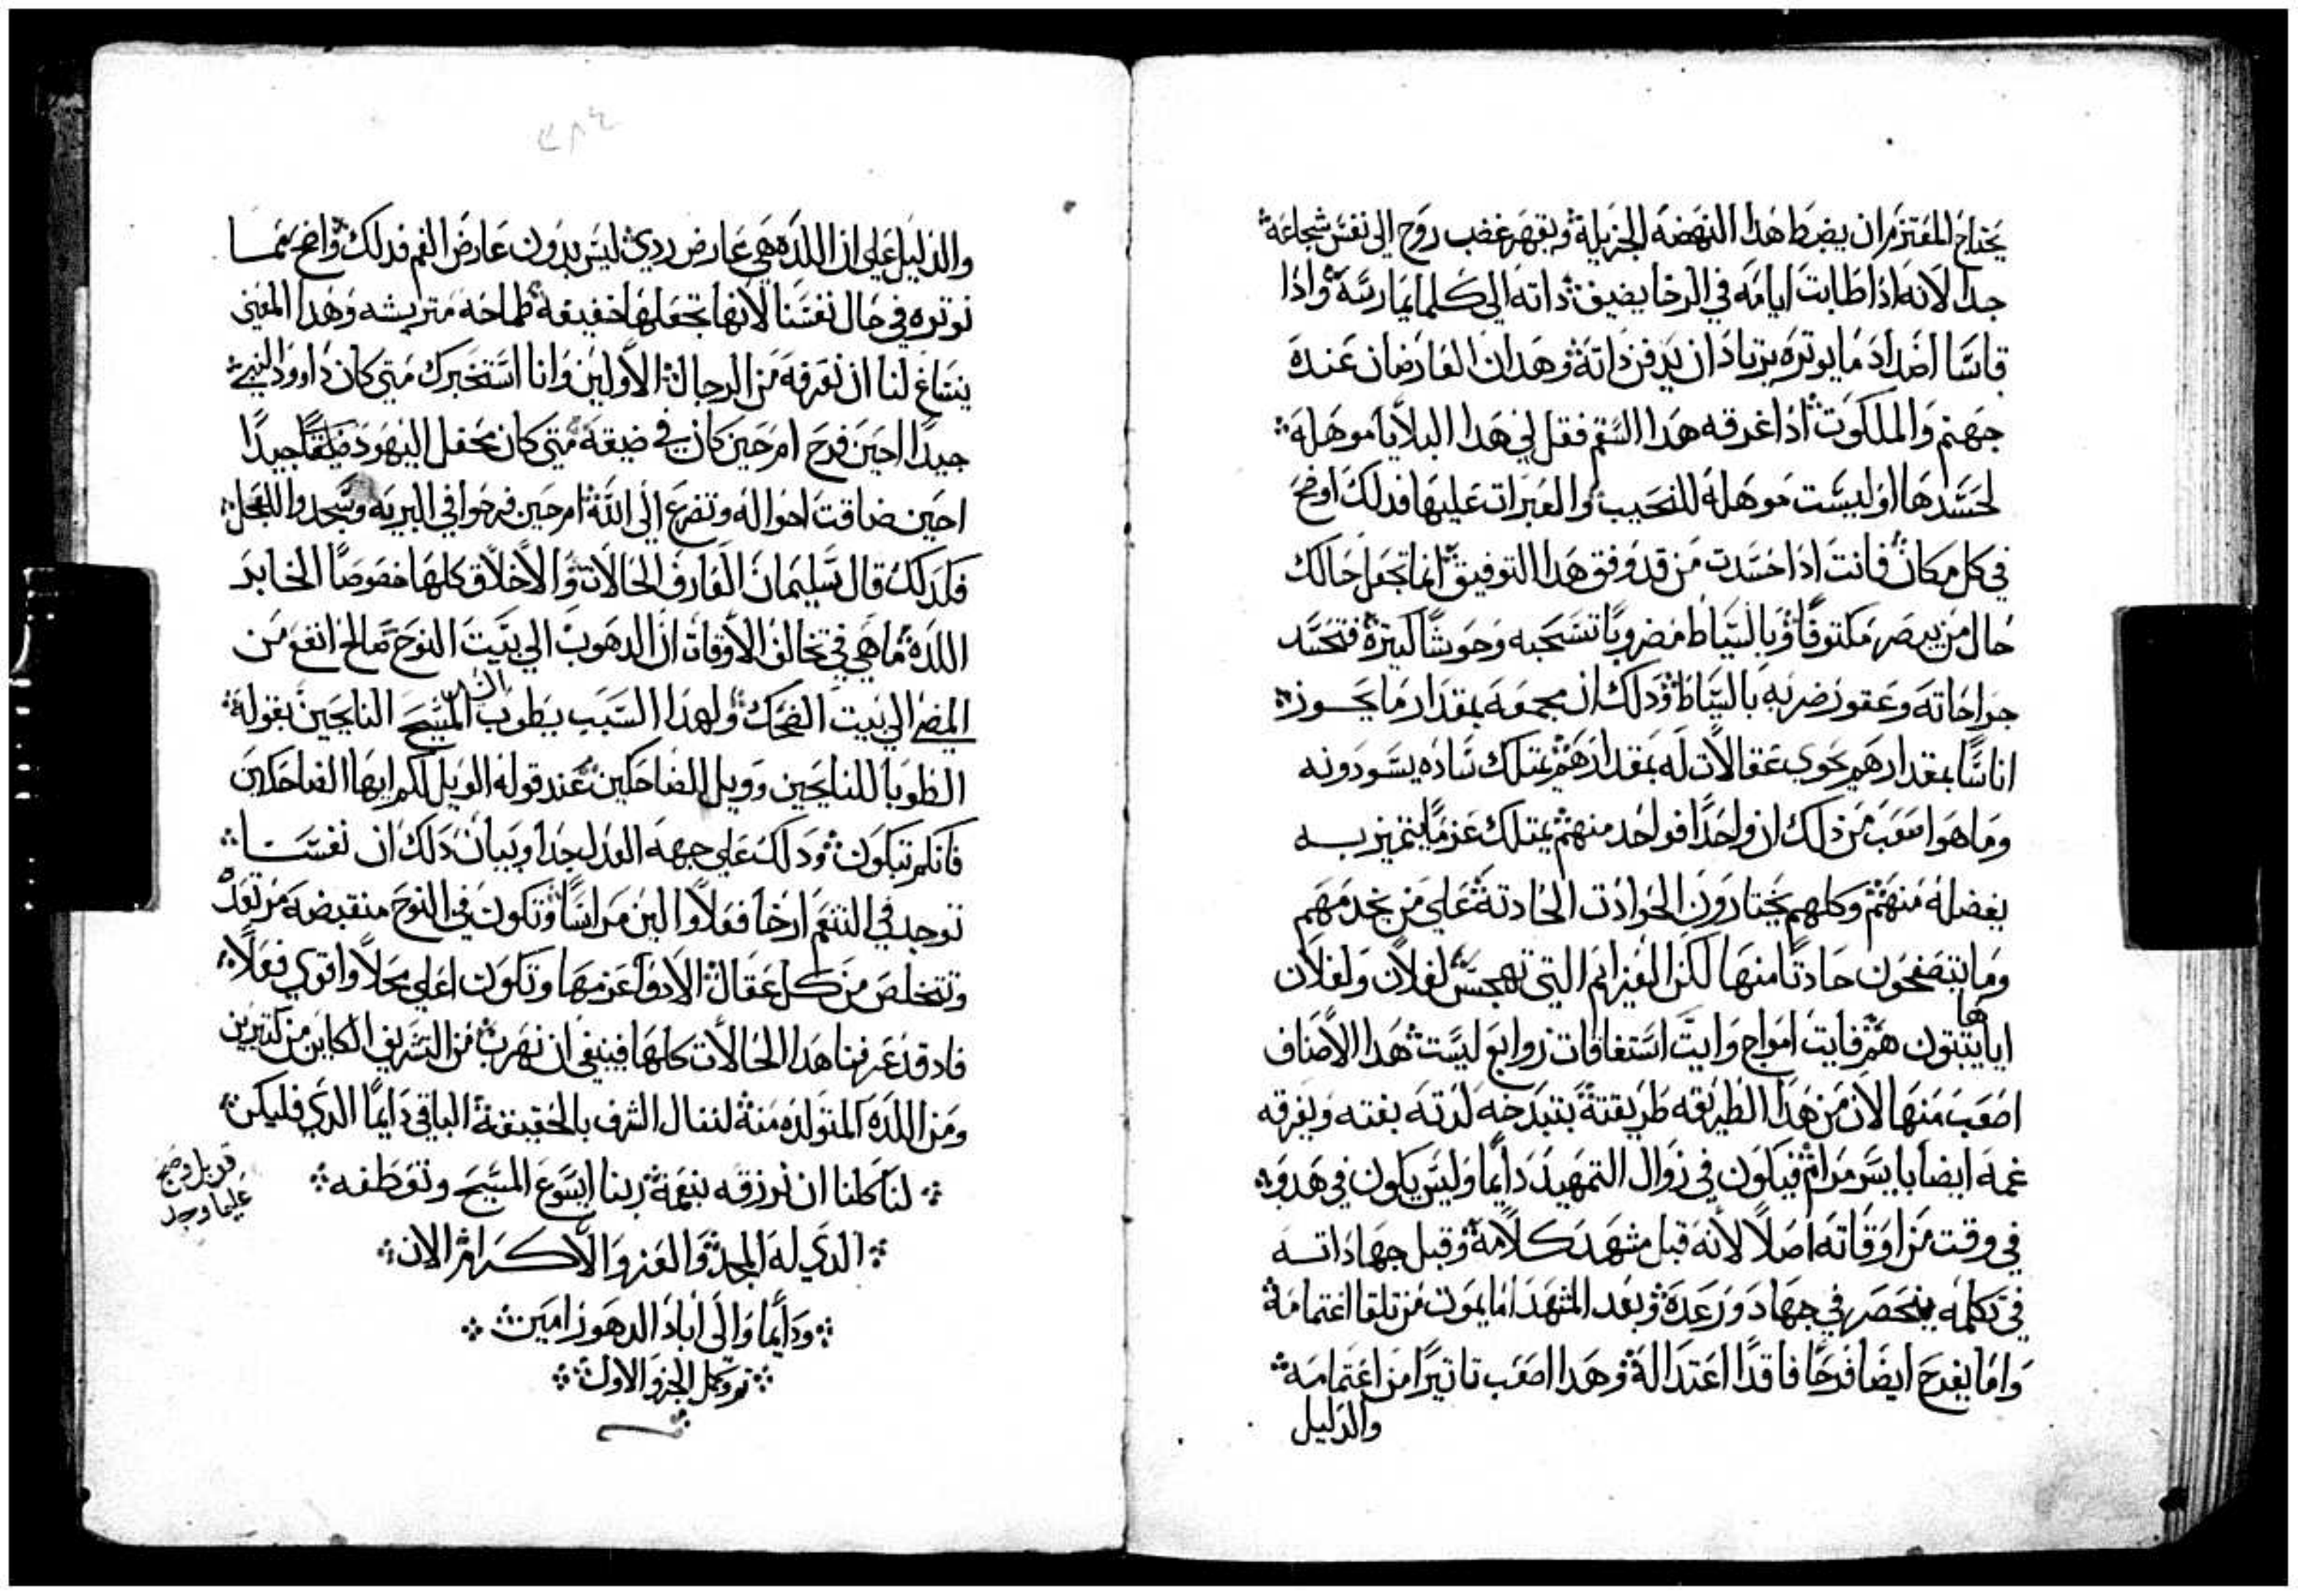 يحتاج المعتزم ان يضبط هذا النهضة الجزيلة ويقهر غضب روح الى نفس شجاعة
جدا لانه اذا طابت ايامه في الرخا يضيف داته الى كلما يمارسة واذا
قاسا اضداد ما يوتره يزداد ان يدفن داتة وهدان العارضان عنده
جهنم والملكوت اذا غرقه هدا السقم فقل لي هدا البلايا موهلة
لحسدها او ليست موهلة للنحيب والعبرات عليها فدلك اوضح
في كل مكان فانت اذا حسدت من قد وفق هدا التوفيق انما تجعل حالك
حال من يبصر مكتوفا وبالسياط مضروبا تسحبه وحوشا كتيرة فتحسد
جراحاته وعقور ضربه بالسياط ودلك ان مجموعه بمقدار ما يحوز
اناسا بمقدارهم يحوي عقالات له بمقدارهم يمتلك ساده يسودونه
وما هوا صعب من ذلك ان واحدا فواحد منهم يمتلك عزما يتميز به
بفضله منهم وكلهم يختارون الحوادت الحادتة على من يخدمهم
وما يتصفحون حادتا منها لكن العزايم التي تهجس لفلان ولفلان
اياها يتبتون هم فايت امواج وايت استعاقات زوابع ليست هدا الاصناف
اصعب منها لان من هدا الطريقه طريقتة بتبدخه لدته بغته ويغرقه
غمه ايضا بايسر مرام فيكون في زوال التمهيد دايما وليس يكون في هدوه
في وقت من اوقاته اصلا لانه قبل مشهد كلامه وقبل جهاداته
في تكلمه ينحصر في جهاد ورعدة وبعد المشهد اما يموت من تلقا اغتمامة
واما يفرح ايضا فرحا فاقدا اعتدالة وهدا اصعب تاتيرا من اغتمامه
والدليل
والدليل على ان اللده هي عارض ردي ليس بدون عارض الغم فدلك واضح مما
توتره في حال نفسنا لانها تجعلها خفيفة طماحه متريشه وهدا المعنى
ينساغ لنا ان نعرفه من الرجال الاولين وانا استخبرك متى كان داوود النبي
جيدا احين فرح ام حين كان في ضيقة متى كان محفل اليهود جيدا
احين ضاقت احواله وتضرع الى الله ام حين فرحوا في البريه وسجدوا للعجل
فلدلك قال سليمان العارف الحالات والاخلاق كلها خصوصا الخابر
اللده ما هي في تخالف الاوقات ان الدهوب الى بيت النوح صالح انفع من
المضي الى بيت الضحك ولهدا السبب يطوب السيد المسيح النايحين بقوله
الطوبا للنايحين وويل للضاحكين عند قوله الويل لكم ايها الضاحكين
فانكم تبكون ودلك على جهه العدل جدا وبيان دلك ان نفسنا
توجد في التنعم ارخا فعلا والين مراسا وتكون في النوح منقبضه
وتتخلص من كل عقال الادوا عزمها وتكون اعلى محلا واقوى فعلا
فاد قد عرفنا هدا الحالات كلها فينبغي ان نهرب من التشريف الكاين من كتيرين
ومن اللده المتولده منه لننال الشرف بالحقيقة الباقي دايما الدي فليكن
لنا كلنا ان نرزقه بنعمة ربنا ايسوع المسيح وتعطفه
الدي له المجد والعز والاكرام الان
ودايما والى اباد الدهور امين
تم وكمل الجزو الاول